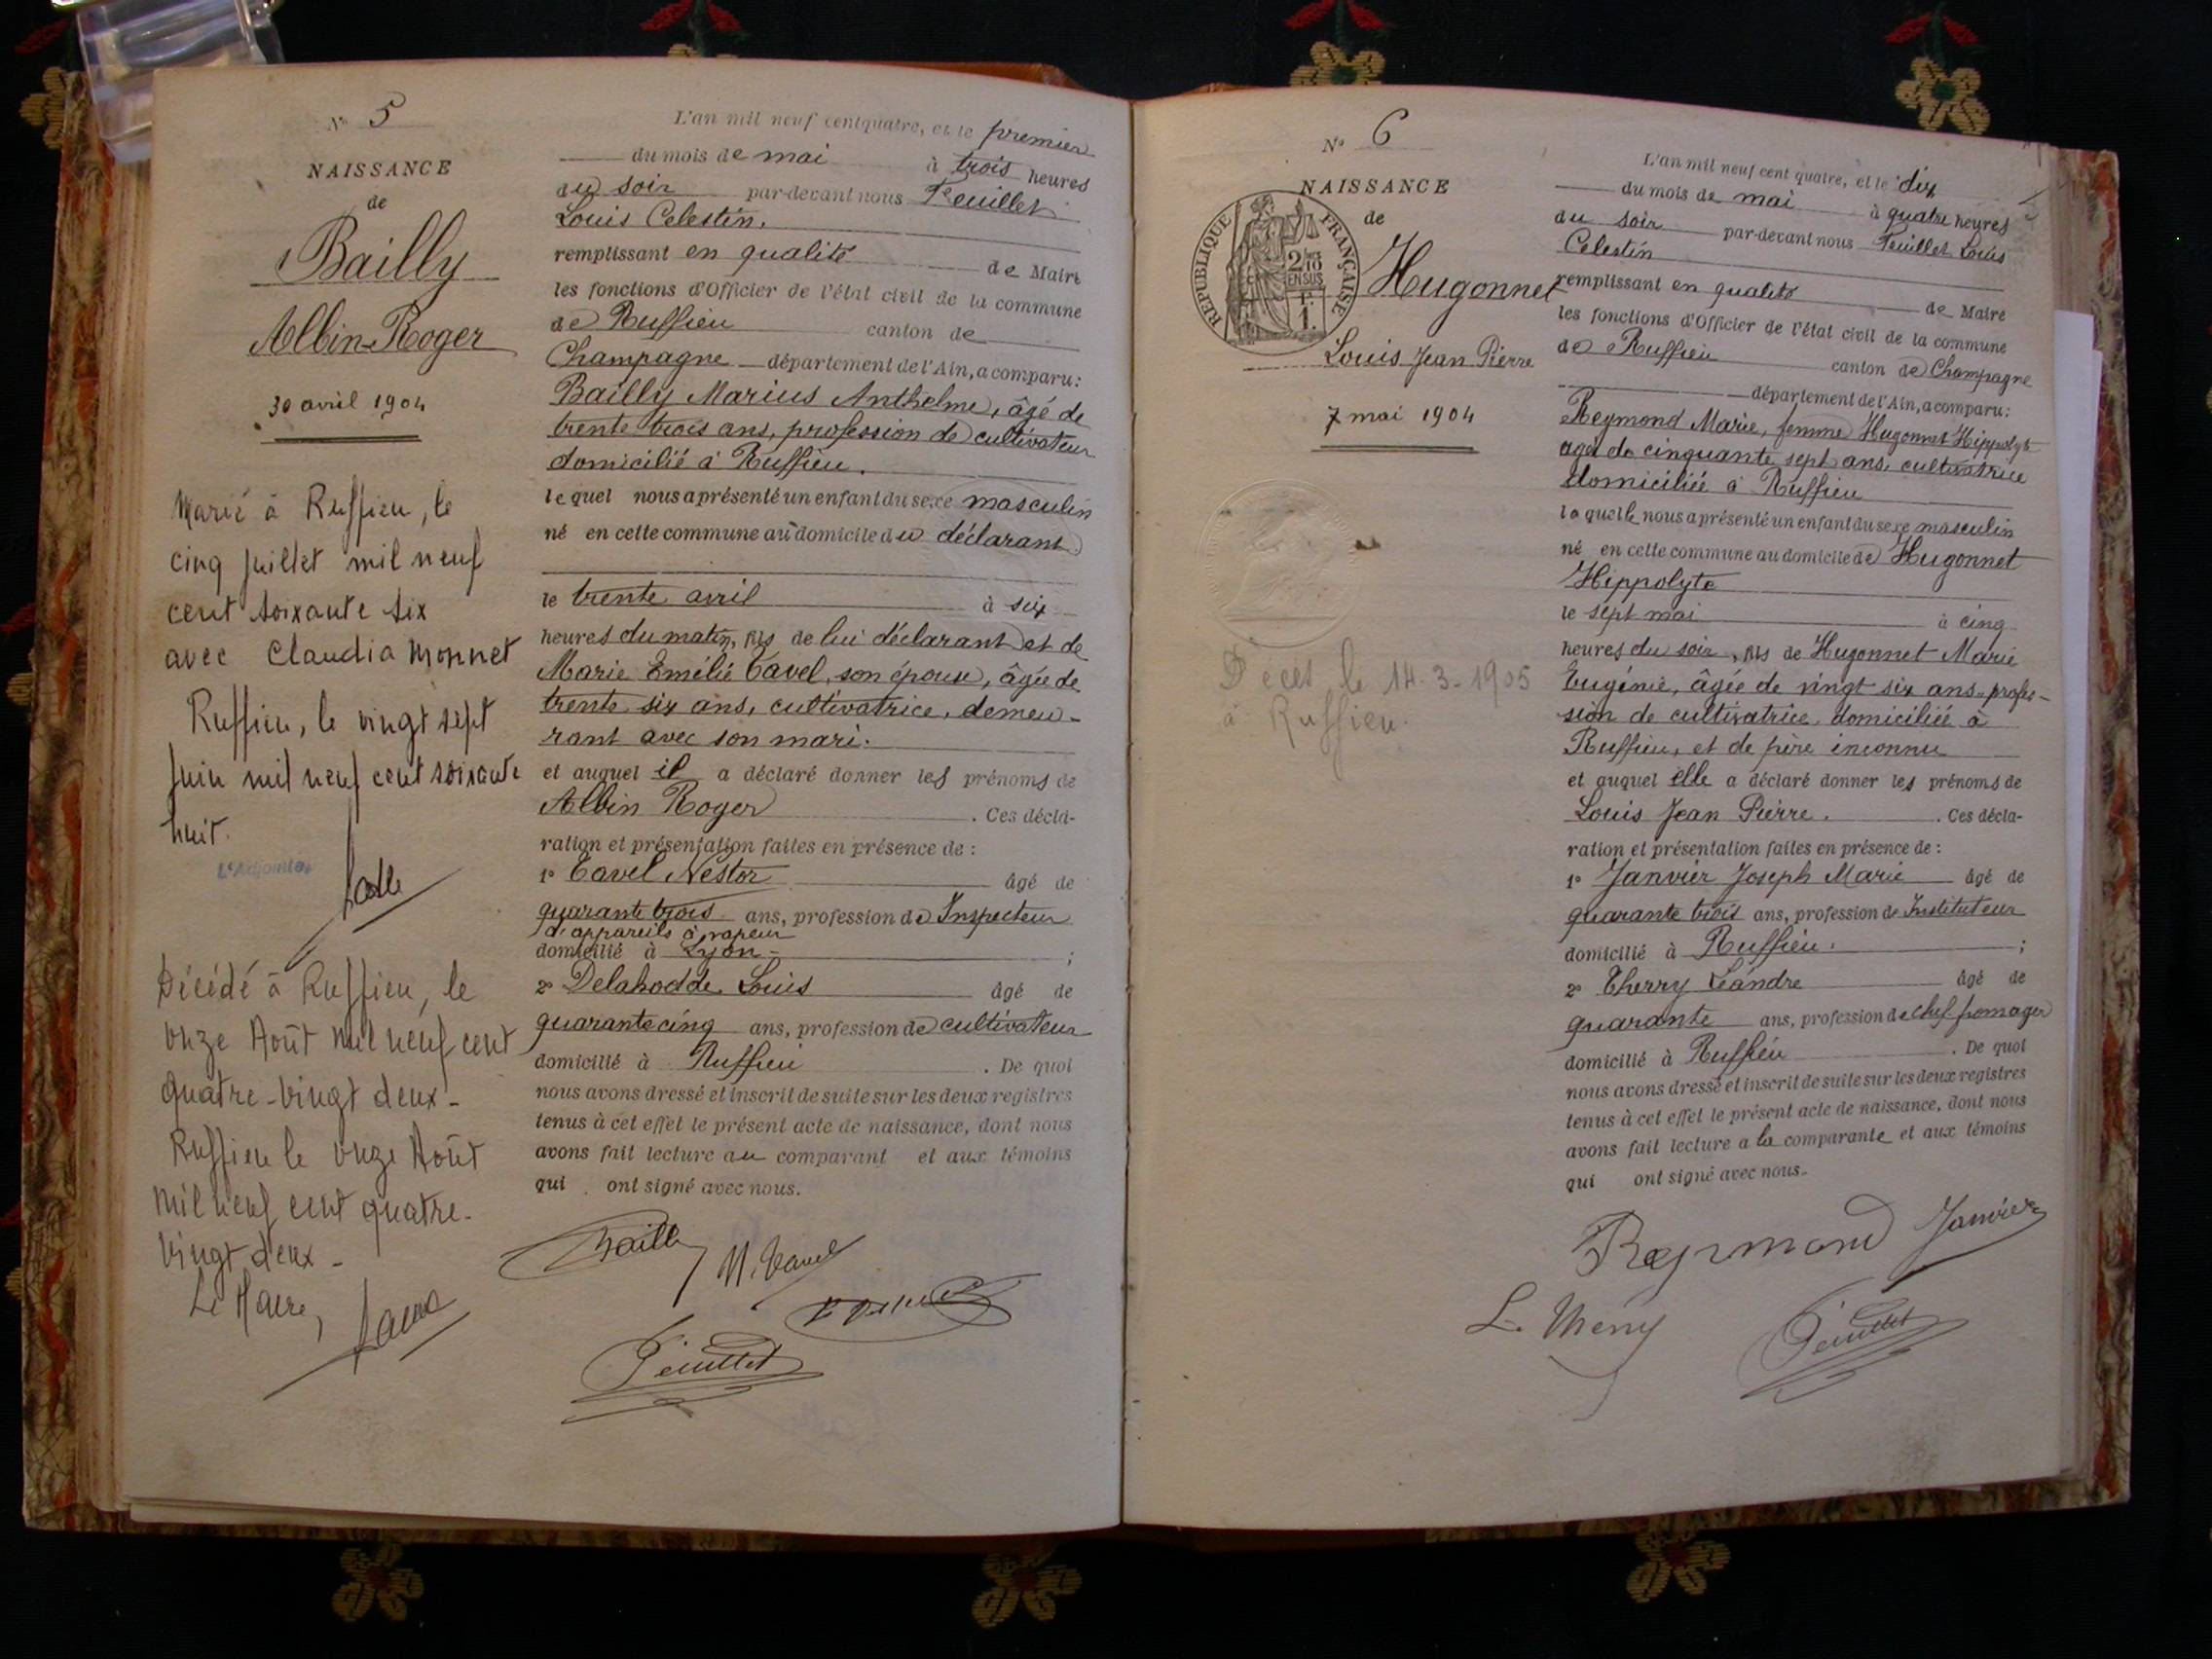 N° 5
NAISSANCE
de
Bailly
Albin Roger
30 avril 1904
Marié à Ruffieu, le
cinq juillet mil neuf
cent soixante six
avec Claudia Monnet
Ruffieu, le vingt sept
juin mil neuf cent soixante
huit.
L'Adjoint
Décédé à Ruffieu, le
onze Août mil neuf cent
quatre-vingt deux -
Ruffieu le onze Août
mil neuf cent quatre-
vingt deux -
Le Maire,
L'an mil neuf cent quatre, et le premier
du mois de mai à trois heures
du soir par-devant nous Peuillet
Louis Celestin.
remplissant en qualité de Maire
les fonctions d'Officier de l'état civil de la commune
de Ruffieu canton de
Champagne département de l'Ain, a comparu:
Bailly Marius Anthelme, âgé de
trente trois ans, profession de cultivateur
domicilié à Ruffieu.
lequel nous a présenté un enfant du sexe masculin
né en cette commune au domicile du déclarant
le trente avril à six
heures du matin, fils de lui déclarant et de
Marie Emélie Tavel, son épouse, âgée de
trente six ans, cultivatrice, demeu-
rant avec son mari.
et auquel il a déclaré donner les prénoms de
Albin Roger . Ces décla-
ration et présentation faites en présence de :
1° Tavel Nestor âgé de
quarante trois ans, profession de Inspecteur
d'appareils à vapeur
domicilié à Lyon - ;
2° Delahodde Louis âgé de
quarante cinq ans, profession de cultivateur
domicilié à Ruffieu . De quoi
nous avons dressé et inscrit de suite sur les deux registres
tenus à cet effet le présent acte de naissance, dont nous
avons fait lecture au comparant et aux témoins
qui ont signé avec nous.
Bailly N. Tavel
Peuillet
N° 6
NAISSANCE
de
REPUBLIQUE FRANÇAISE
2/10
EN SUS
1F.
Hugonnet
Louis Jean Pierre
7 mai 1904
Décès le 14-3-1905
à Ruffieu.
L'an mil neuf cent quatre, et le dix
du mois de mai à quatre heures
du soir par-devant nous Peuillet Louis
Celestin
remplissant en qualité de Maire
les fonctions d'Officier de l'état civil de la commune
de Ruffieu canton de Champagne
département de l'Ain, a comparu:
Reymond Marie, femme Hugonnet Hippolyte
agée de cinquante sept ans, cultivatrice
domiciliée à Ruffieu
laquelle nous a présenté un enfant du sexe masculin
né en cette commune au domicile de Hugonnet
Hippolyte
le sept mai à cinq
heures du soir, fils de Hugonnet Marie
Eugénie, âgée de vingt six ans - profes-
sion de cultivatrice domiciliée à
Ruffieu, et de père inconnu
et auquel elle a déclaré donner les prénoms de
Louis Jean Pierre. . Ces décla-
ration et présentation faites en présence de :
1° Janvier Joseph Marie âgé de
quarante trois ans, profession de Instituteur
domicilié à Ruffieu. ;
2° Therry Léandre âgé de
quarante ans, profession de chef fromager
domicilié à Ruffieu . De quoi
nous avons dressé et inscrit de suite sur les deux registres
tenus à cet effet le présent acte de naissance, dont nous
avons fait lecture a la comparante et aux témoins
qui ont signé avec nous.
Reymond Janvier
Peuillet